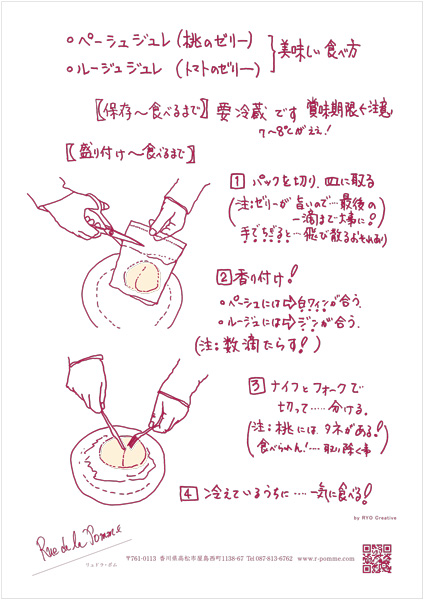 ○ ペーシュジュレ(桃のゼリー)
○ ルージュジュレ (トマトのゼリー)
美味しい食べ方
【保存〜食べるまで】要冷蔵です 賞味期限に注意
7〜8℃がええ!
【盛り付け〜食べるまで】
1 パックを切り、皿に取る
(注:ゼリーが旨いので…最後の
一滴まで大事に!)
手でちぎると…飛び散るおそれあり
2 香り付け!
○ ペーシュには⇨白ワインが合う.
○ ルージュには⇨ジンが合う.
(注:数滴たらす!)
3 ナイフとフォークで
切って……分ける.
(注:桃にはタネがある!
食べられん!…取り除く事)
4 冷えているうちに……一気に食べる!
by RYO Creative
Rue de la Pomme
リュドラ・ポム
〒761-0113 香川県高松市屋島西町1138-67 Tel 087-813-6762 www.r-pomme.com